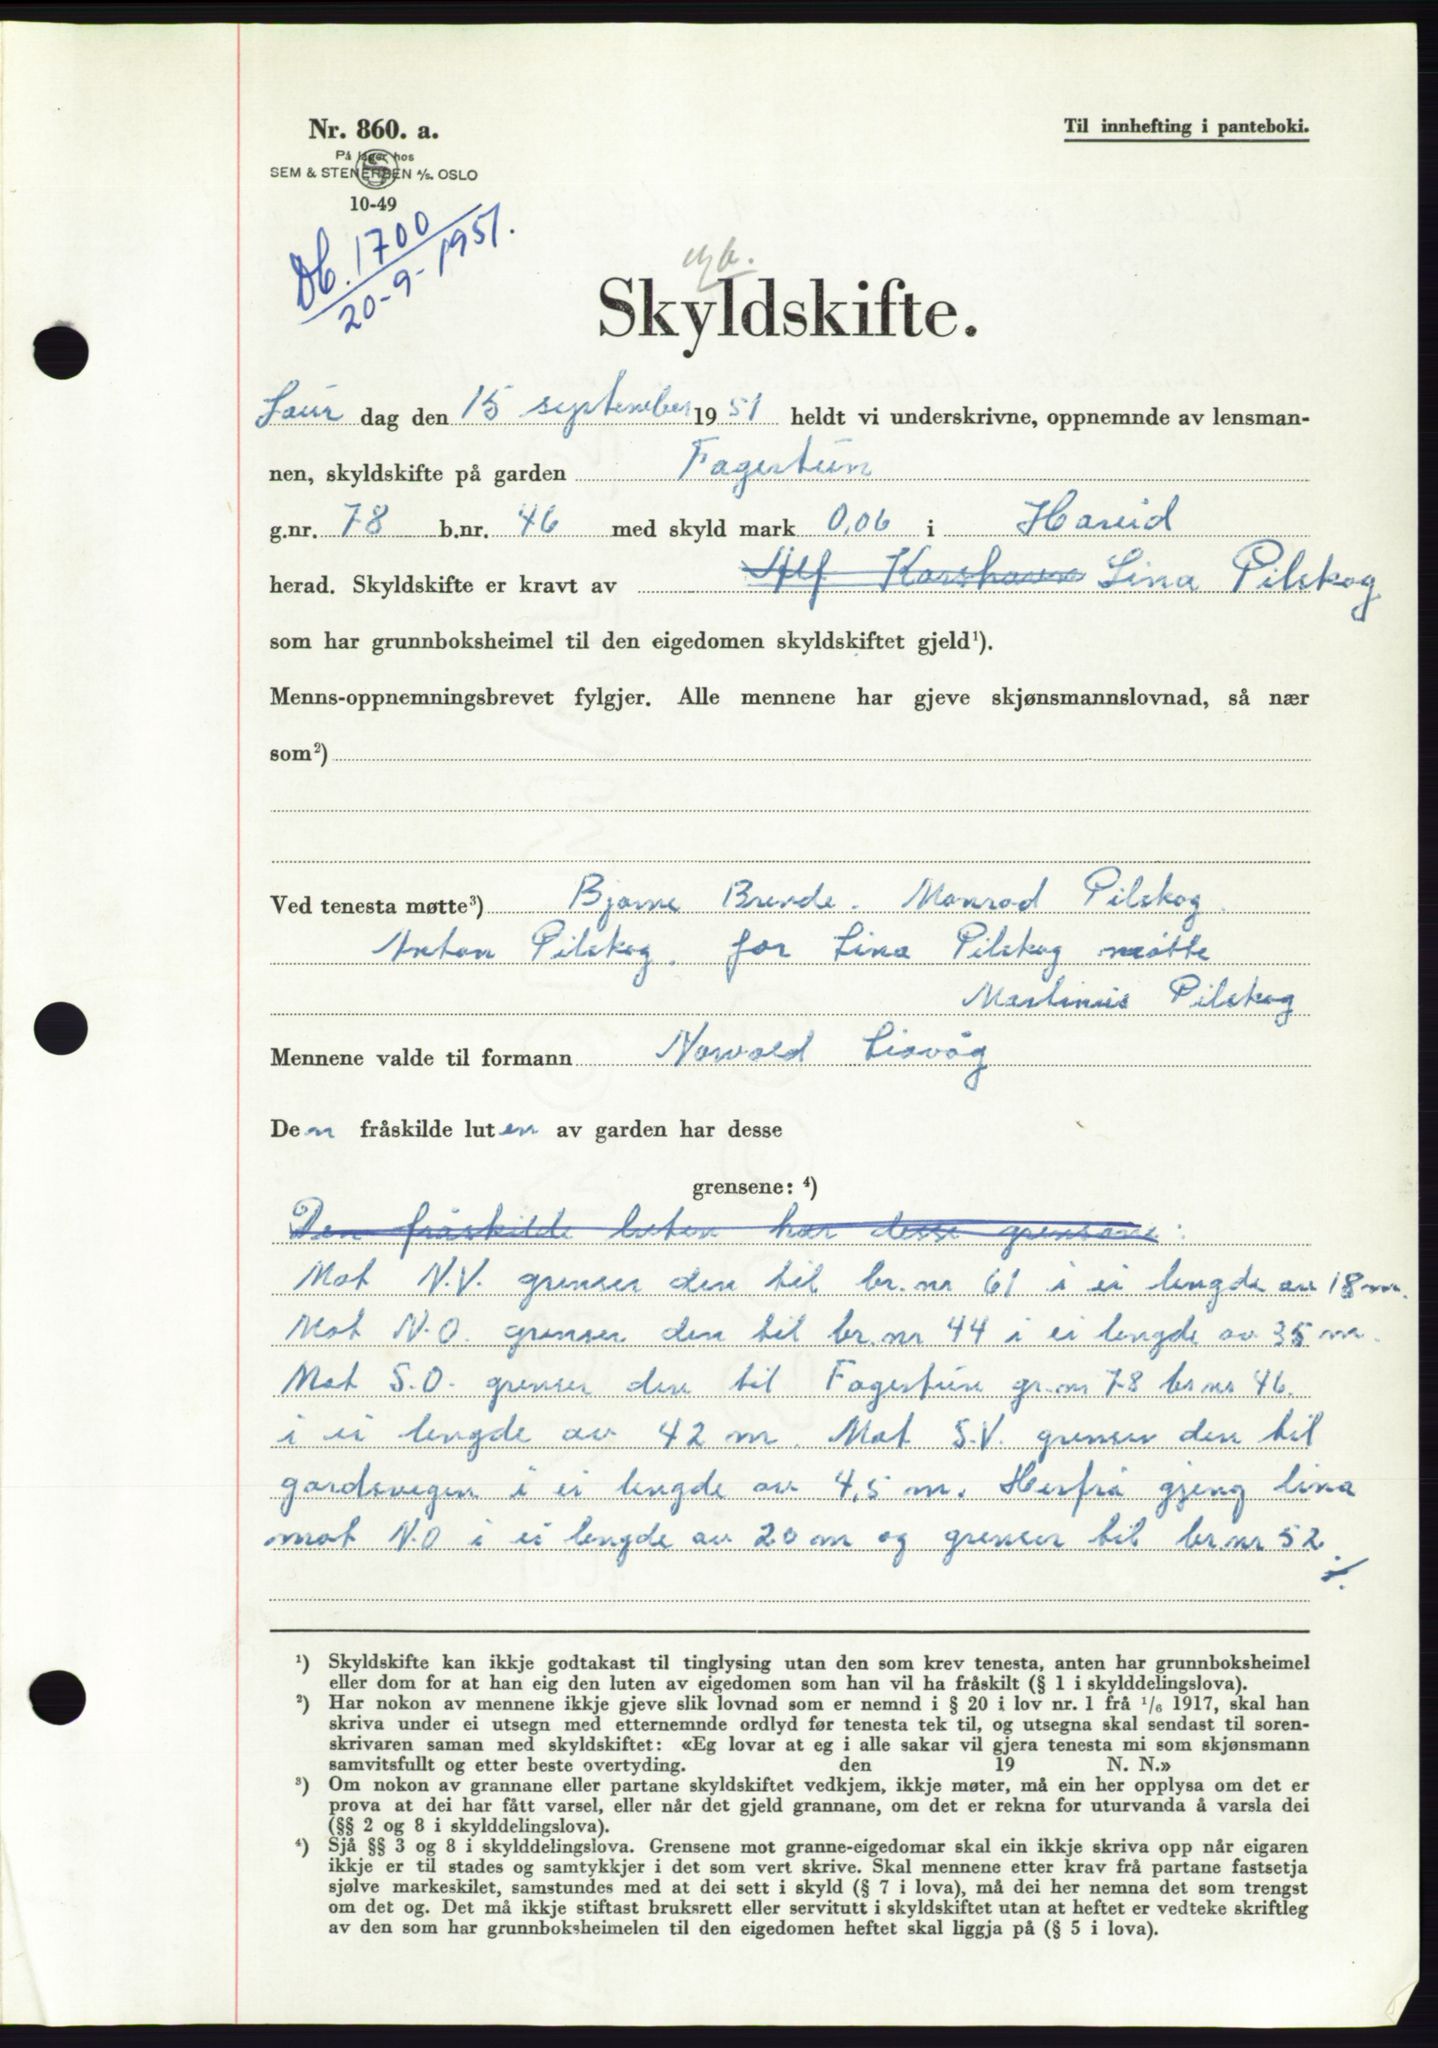 Nr. 860. a.
På lager hos
SEM & STENERSEN A/S. OSLO
10-49
Til innhefting i panteboki.
Db. 1700
20-9-1951.
Skyldskifte.
Laur dag den 15 september 1951 heldt vi underskrivne, oppnemnde av lensman-
nen, skyldskifte på garden Fagertun
g.nr. 78 b.nr. 46 med skyld mark 0,06 i Hareid
herad. Skyldskifte er kravt av Alf Lina Pilskog
som har grunnboksheimel til den eigedomen skyldskiftet gjeld¹).
Menns-oppnemningsbrevet fylgjer. Alle mennene har gjeve skjønsmannslovnad, så nær
som²)
Ved tenesta møtte³) Bjarne Brende. Monrad Pilskog.
Anton Pilskog. for Lina Pilskog møtte
Martinus Pilskog
Mennene valde til formann Norvald Liavåg
Den fråskilde luten av garden har desse
grensene: ⁴)
Den fråskilde luten har desse grensene:
Mot N.V. grenser den til br.nr 61 i ei lengde av 18 m.
Mot N.O. grenser den til br.nr 44 i ei lengde av 35 m.
Mot S.O. grenser den til Fagertun gr.nr 78 br.nr 46.
i ei lengde av 42 m. Mot S.V. grenser den til
gardsvegen i ei lengde av 4,5 m. Herfrå gjeng lina
mot N.O i ei lengde av 20 m og grenser til br.nr 52.
¹) Skyldskifte kan ikkje godtakast til tinglysing utan den som krev tenesta, anten har grunnboksheimel
eller dom for at han eig den luten av eigedomen som han vil ha fråskilt (§ 1 i skylddelingslova).
²) Har nokon av mennene ikkje gjeve slik lovnad som er nemnd i § 20 i lov nr. 1 frå ¹/₆ 1917, skal han
skriva under ei utsegn med etternemnde ordlyd før tenesta tek til, og utsegna skal sendast til soren-
skrivaren saman med skyldskiftet: «Eg lovar at eg i alle sakar vil gjera tenesta mi som skjønsmann
samvitsfullt og etter beste overtyding. den 19 N. N.»
³) Om nokon av grannane eller partane skyldskiftet vedkjem, ikkje møter, må ein her opplysa om det er
prova at dei har fått varsel, eller når det gjeld grannane, om det er rekna for uturvanda å varsla dei
(§§ 2 og 8 i skylddelingslova).
⁴) Sjå §§ 3 og 8 i skylddelingslova. Grensene mot granne-eigedomar skal ein ikkje skriva opp når eigaren
ikkje er til stades og samtykkjer i det som vert skrive. Skal mennene etter krav frå partane fastsetja
sjølve markeskilet, samstundes med at dei sett i skyld (§ 7 i lova), må dei her nemna det som trengst
om det og. Det må ikkje stiftast bruksrett eller servitutt i skyldskiftet utan at heftet er vedteke skriftleg
av den som har grunnboksheimelen til den eigedomen heftet skal liggja på (§ 5 i lova).